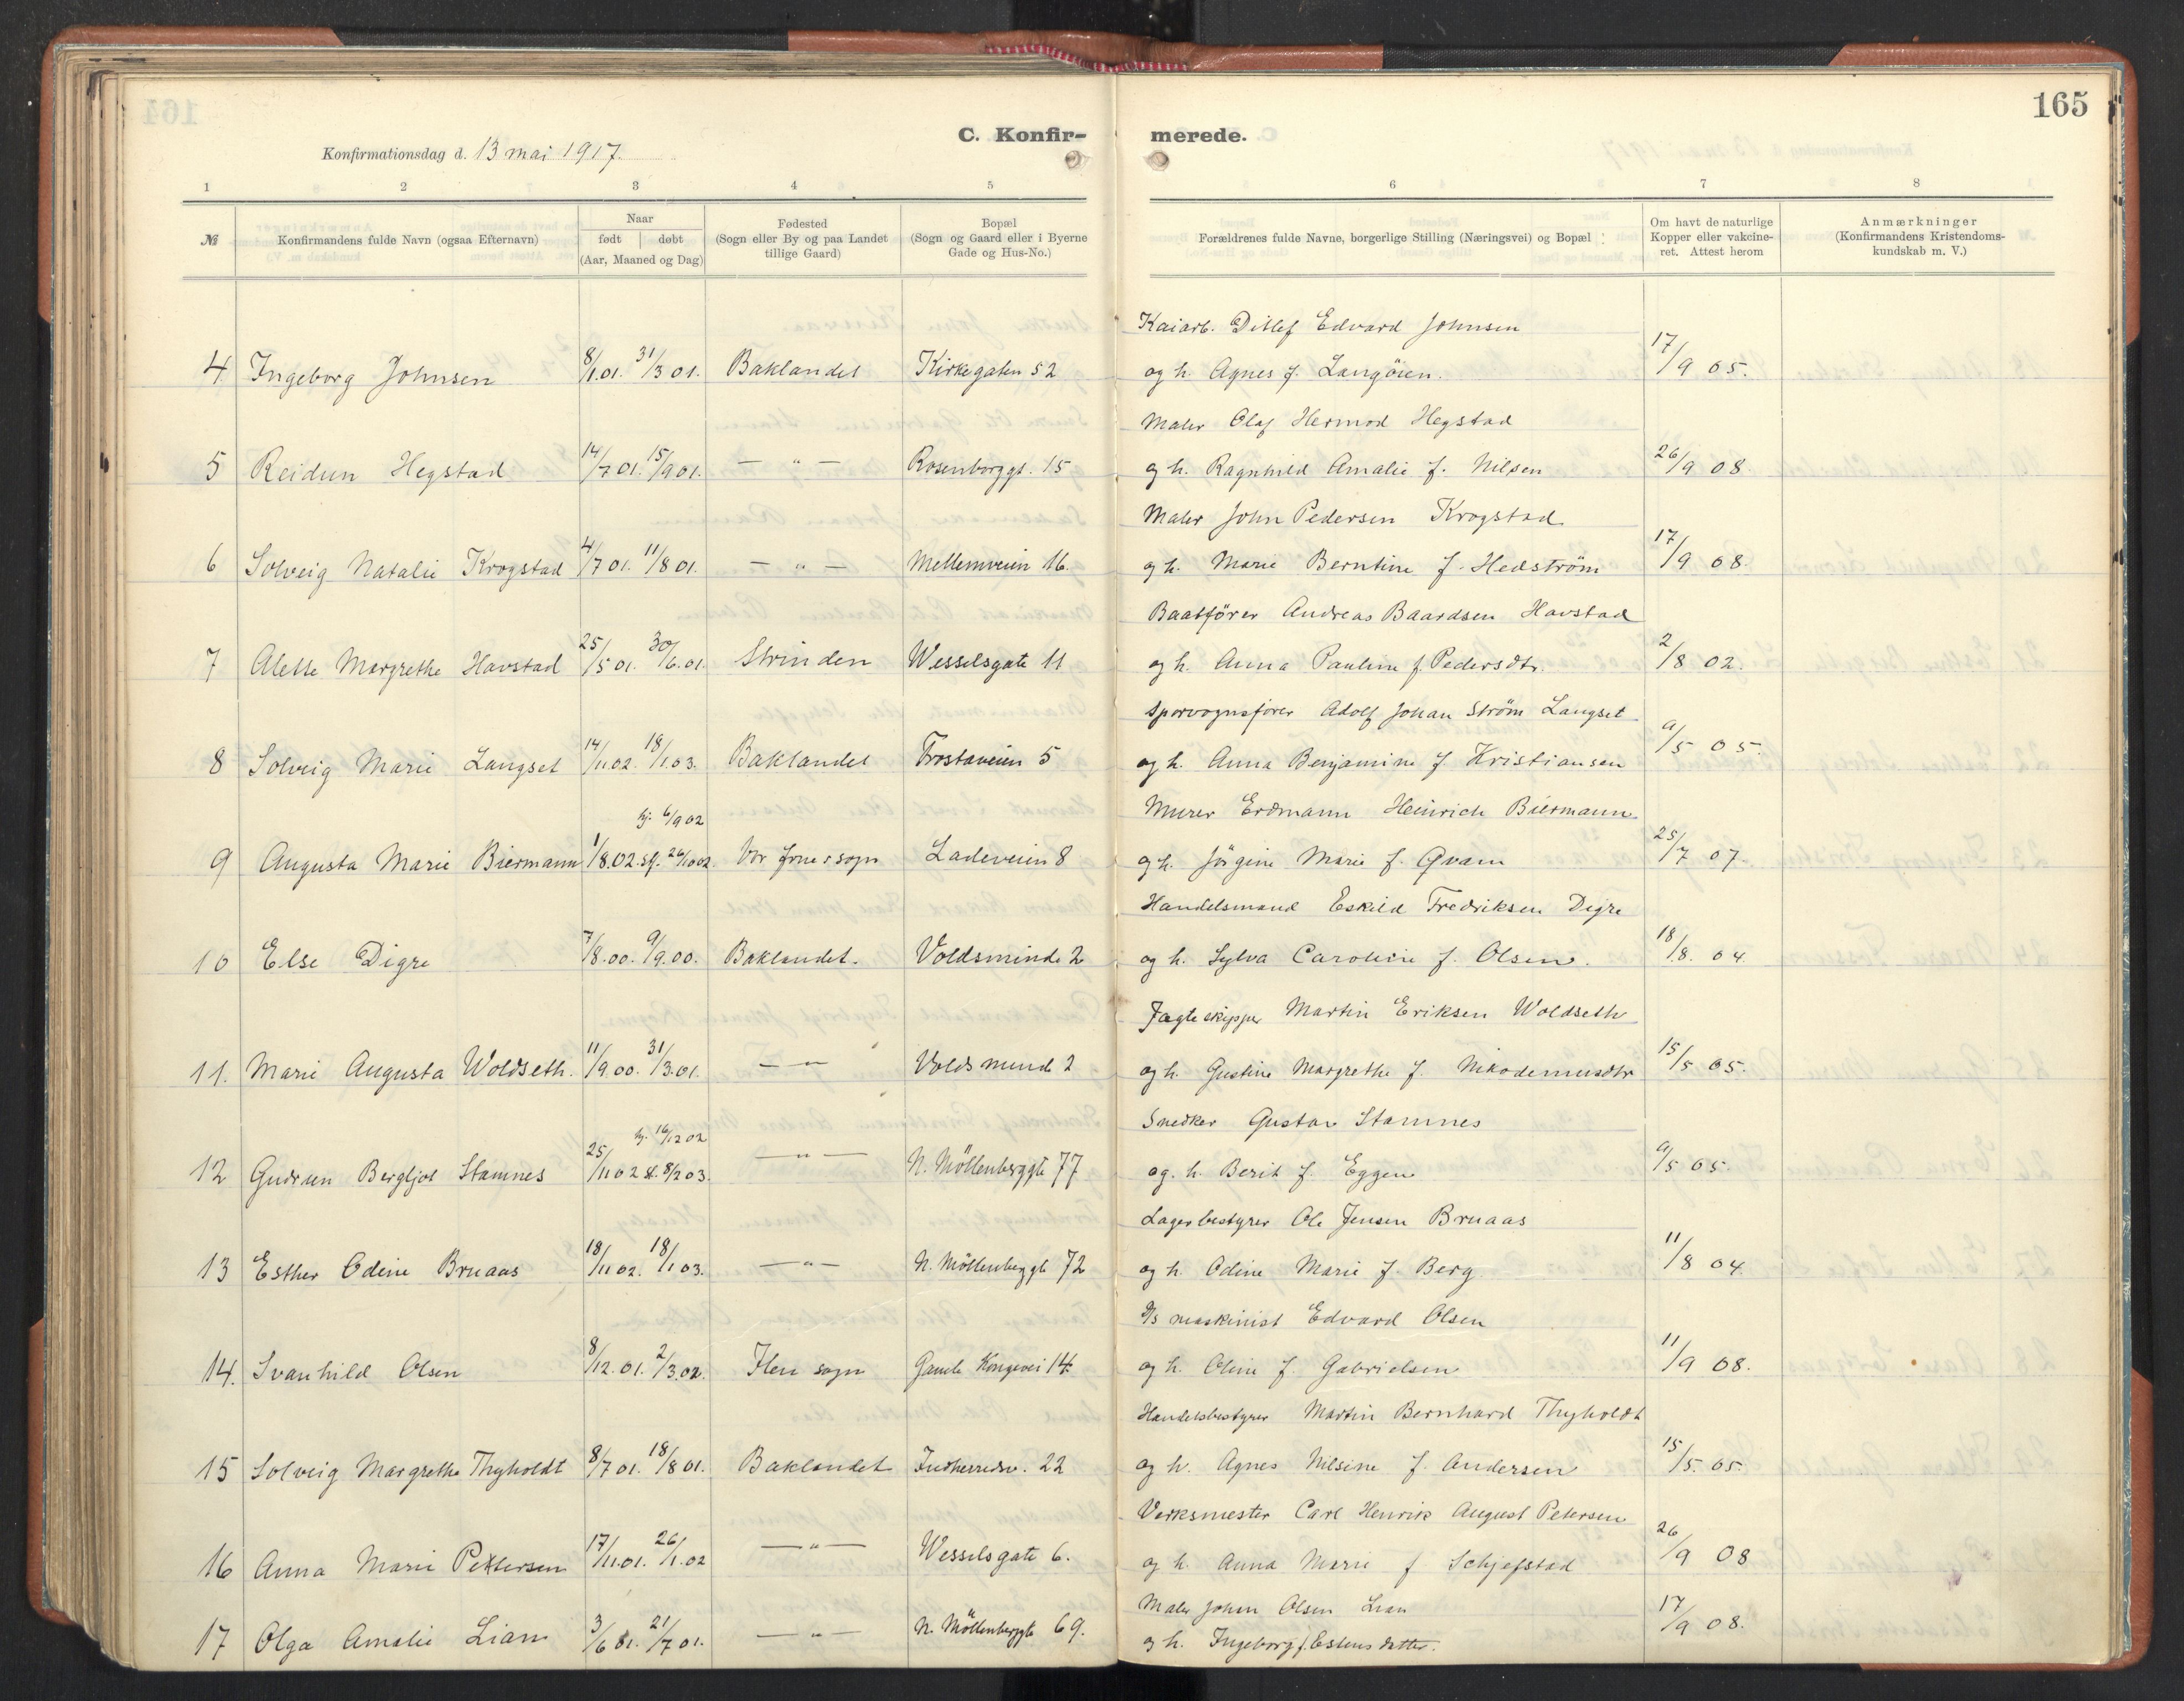 165
C. Konfir- merede.
Konfirmationsdag d. 13 mai 1917.
1 2 3 4 5 6 7 8
№
Konfirmandens fulde Navn (ogsaa Efternavn)
Naar
født døbt
(Aar, Maaned og Dag)
Fødested
(Sogn eller By og paa Landet
tillige Gaard)
Bopæl
(Sogn og Gaard eller i Byerne
Gade og Hus-No.)
Forældrenes fulde Navne, borgerlige Stilling (Næringsvei) og Bopæl
Om havt de naturlige
Kopper eller vakcine-
ret. Attest herom
Anmærkninger
(Konfirmandens Kristendoms-
kundskab m. V.)
Kaiarb. Ditlef Edvard Johnsen
4 Ingeborg Johnsen 8/1.01. 31/3 01. Baklandet Kirkegaten 52 og h. Agnes f. Langören. 17/9 05.
Maler Olaf Hermod Hegstad
5 Reidun Hegstad 14/7 01. 15/9 01. — " — Rosenborggt. 15 og h. Ragnhild Amalie f. Nilsen 26/9 08.
Maler John Pedersen Krogstad
6 Solveig Natalie Krogstad 4/7 01. 11/8 01. — " — Mellemveien 16. og h. Marie Berntine f. Hedström 17/9 08.
Baatförer Andreas Baardsen Havstad
7 Alette Margrethe Havstad 25/5 01. 30/6.01. Strinden Wesselsgate 11 og h. Anna Pauline f. Pedersdtr. 2/8 02.
Sporvognsfører Adolf Johan Strøm Langset
8 Solveig Marie Langset 14/11.02. 18/1.03. Baklandet Frostaveien 5 og h. Anna Benjamine f. Kristiansen 9/5 05.
hj. 6/9 02 Murer Erdmann Heinrich Biermann
9 Augusta Marie Biermann 1/8.02. st. 26/10 02. Vor Frues sogn Ladeveien 8 og h. Jörgine Marie f. Qvam 25/7 07.
Handelsmand Eskild Fredriksen Digre
10 Else Digre 7/8.00. 9/9.00. Baklandet. Voldsminde 2 og h. Sylva Caroline f. Olsen. 18/8. 04
Jagteskipper Martin Eriksen Woldseth
11. Marie Augusta Woldseth. 11/9.00. 31/3.01. — " Voldsminde 2 og h. Gustine Margrethe f. Nikodemusdtr 15/5 05.
hj. 16/12 02 Snedker Gustav Stamnes
12 Gudrun Bergljot Stamnes 25/11 02 st. 8/2 03. — " — N. Möllenberggt 77 og. h. Berit f. Eggen 9/5 05.
Lagerbestyrer Ole Jensen Bruaas
13 Esther Odine Bruaas 18/11 02. 18/1 03. — " — N. Möllenberggt 72 og h. Odine Marie f. Berg 11/8 04.
D/s maskinist Edvard Olsen
14. Svanhild Olsen 8/12.01. 2/3.02. Ilens sogn Gamle Kongevei 14. og h. Oline f. Gabrielsen 11/9 08.
Handelsbestyrer Martin Bernhard Thyholdt
15 Solveig Margrethe Thyholdt 8/7 01. 18/8 01. Baklandet Indherredsv. 22 og h. Agnes Nilsine f. Andersen 15/5. 05.
Verksmester Carl Henrik August Petersen
16 Anna Marie Pettersen 17/11.01. 26/1.02 — " — Wesselsgate 6. og h. Anna Marie f Schjefstad 26/9 08
Maler Johan Olsen Lian
17 Olga Amalie Lian 3/6 01. 21/7 01. — " — N. Möllenberggt 69. og h. Ingeborg f. Estensdatter. 17/9 08.